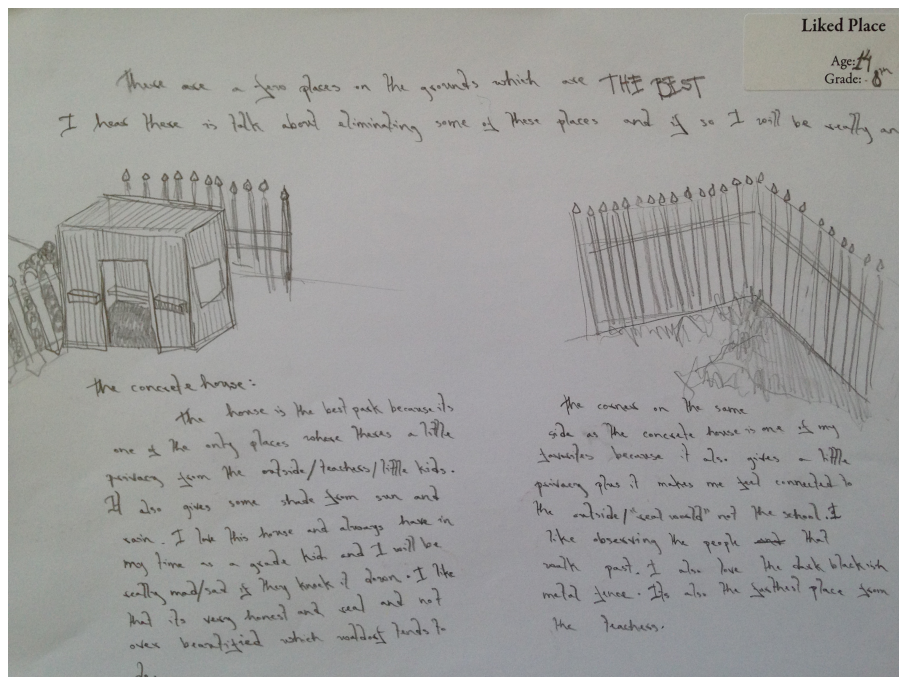 Liked Place
Age: 14
Grade: 8th
There are a few places on the grounds which are THE BEST
I hear there is talk about eliminating some of these places and if so I will be really an
the concrete house:
The house is the best park because its
one of the only places where theres a little
privacy from the outside/teachers/little kids.
It also gives some shade from sun and
rain. I love this house and always have in
my time as a grade kid and I will be
really mad/sad if they knock it down. I like
that its very honest and real and not
over beautified which waldorf tends to
do.
the corner on the same
side as the concrete house is one of my
favorites because it also gives a little
privacy plus it makes me feel connected to
the outside/"real world" not the school. I
like observing the people that
walk past. I also love the dark blackish
metal fence. Its also the furthest place from
the teachers.